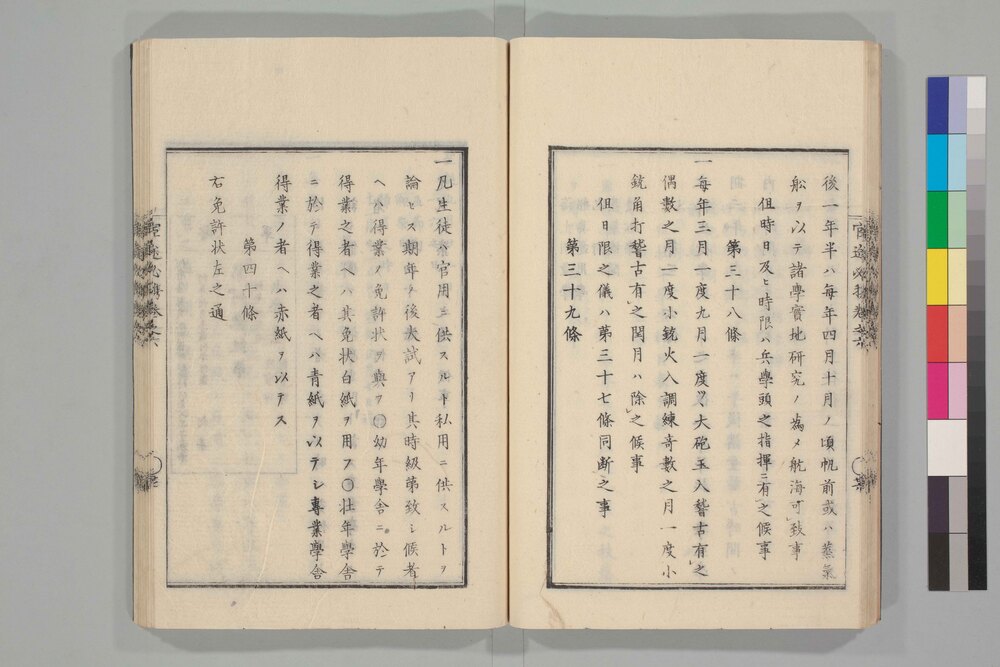 後一年半ハ毎年四月十月ノ頃帆前或ハ蒸氣
舩ヲ以テ諸學實地研究ノ為メ航海可致事
但時日及ヒ時限ハ兵學頭之指揮ニ有之候事
第三十八條
一每年三月一度九月一度ツヽ大砲玉入督古有之
偶數之月一度小銃火入調練奇數之月一度小
銃角打督古有之閏月ハ除之候事
但日限之儀ハ第三十七條同断之事
第三十九條
一凡生徒ハ官用ニ供スルト私用ニ供スルトヲ
論セス期年ノ後大試アリ其時級第致シ候者
ヘハ得業ノ免許状ヲ與フ〇幼年學舎ニ於テ
得業之者ヘハ其免状白紙ヲ用フ〇壮年學舎
ニ於テ得業之者ヘハ青紙ヲ以テシ專業學舎
得業ノ者ヘハ赤紙ヲ以テス
第四十條
右免許状左之通